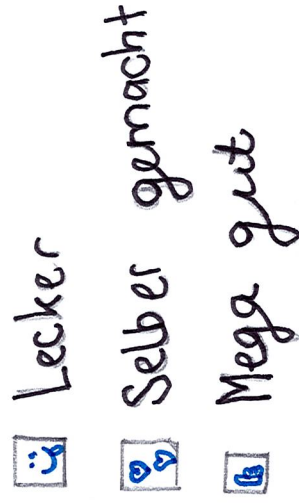 Lecker
Selber gemacht
Mega gut